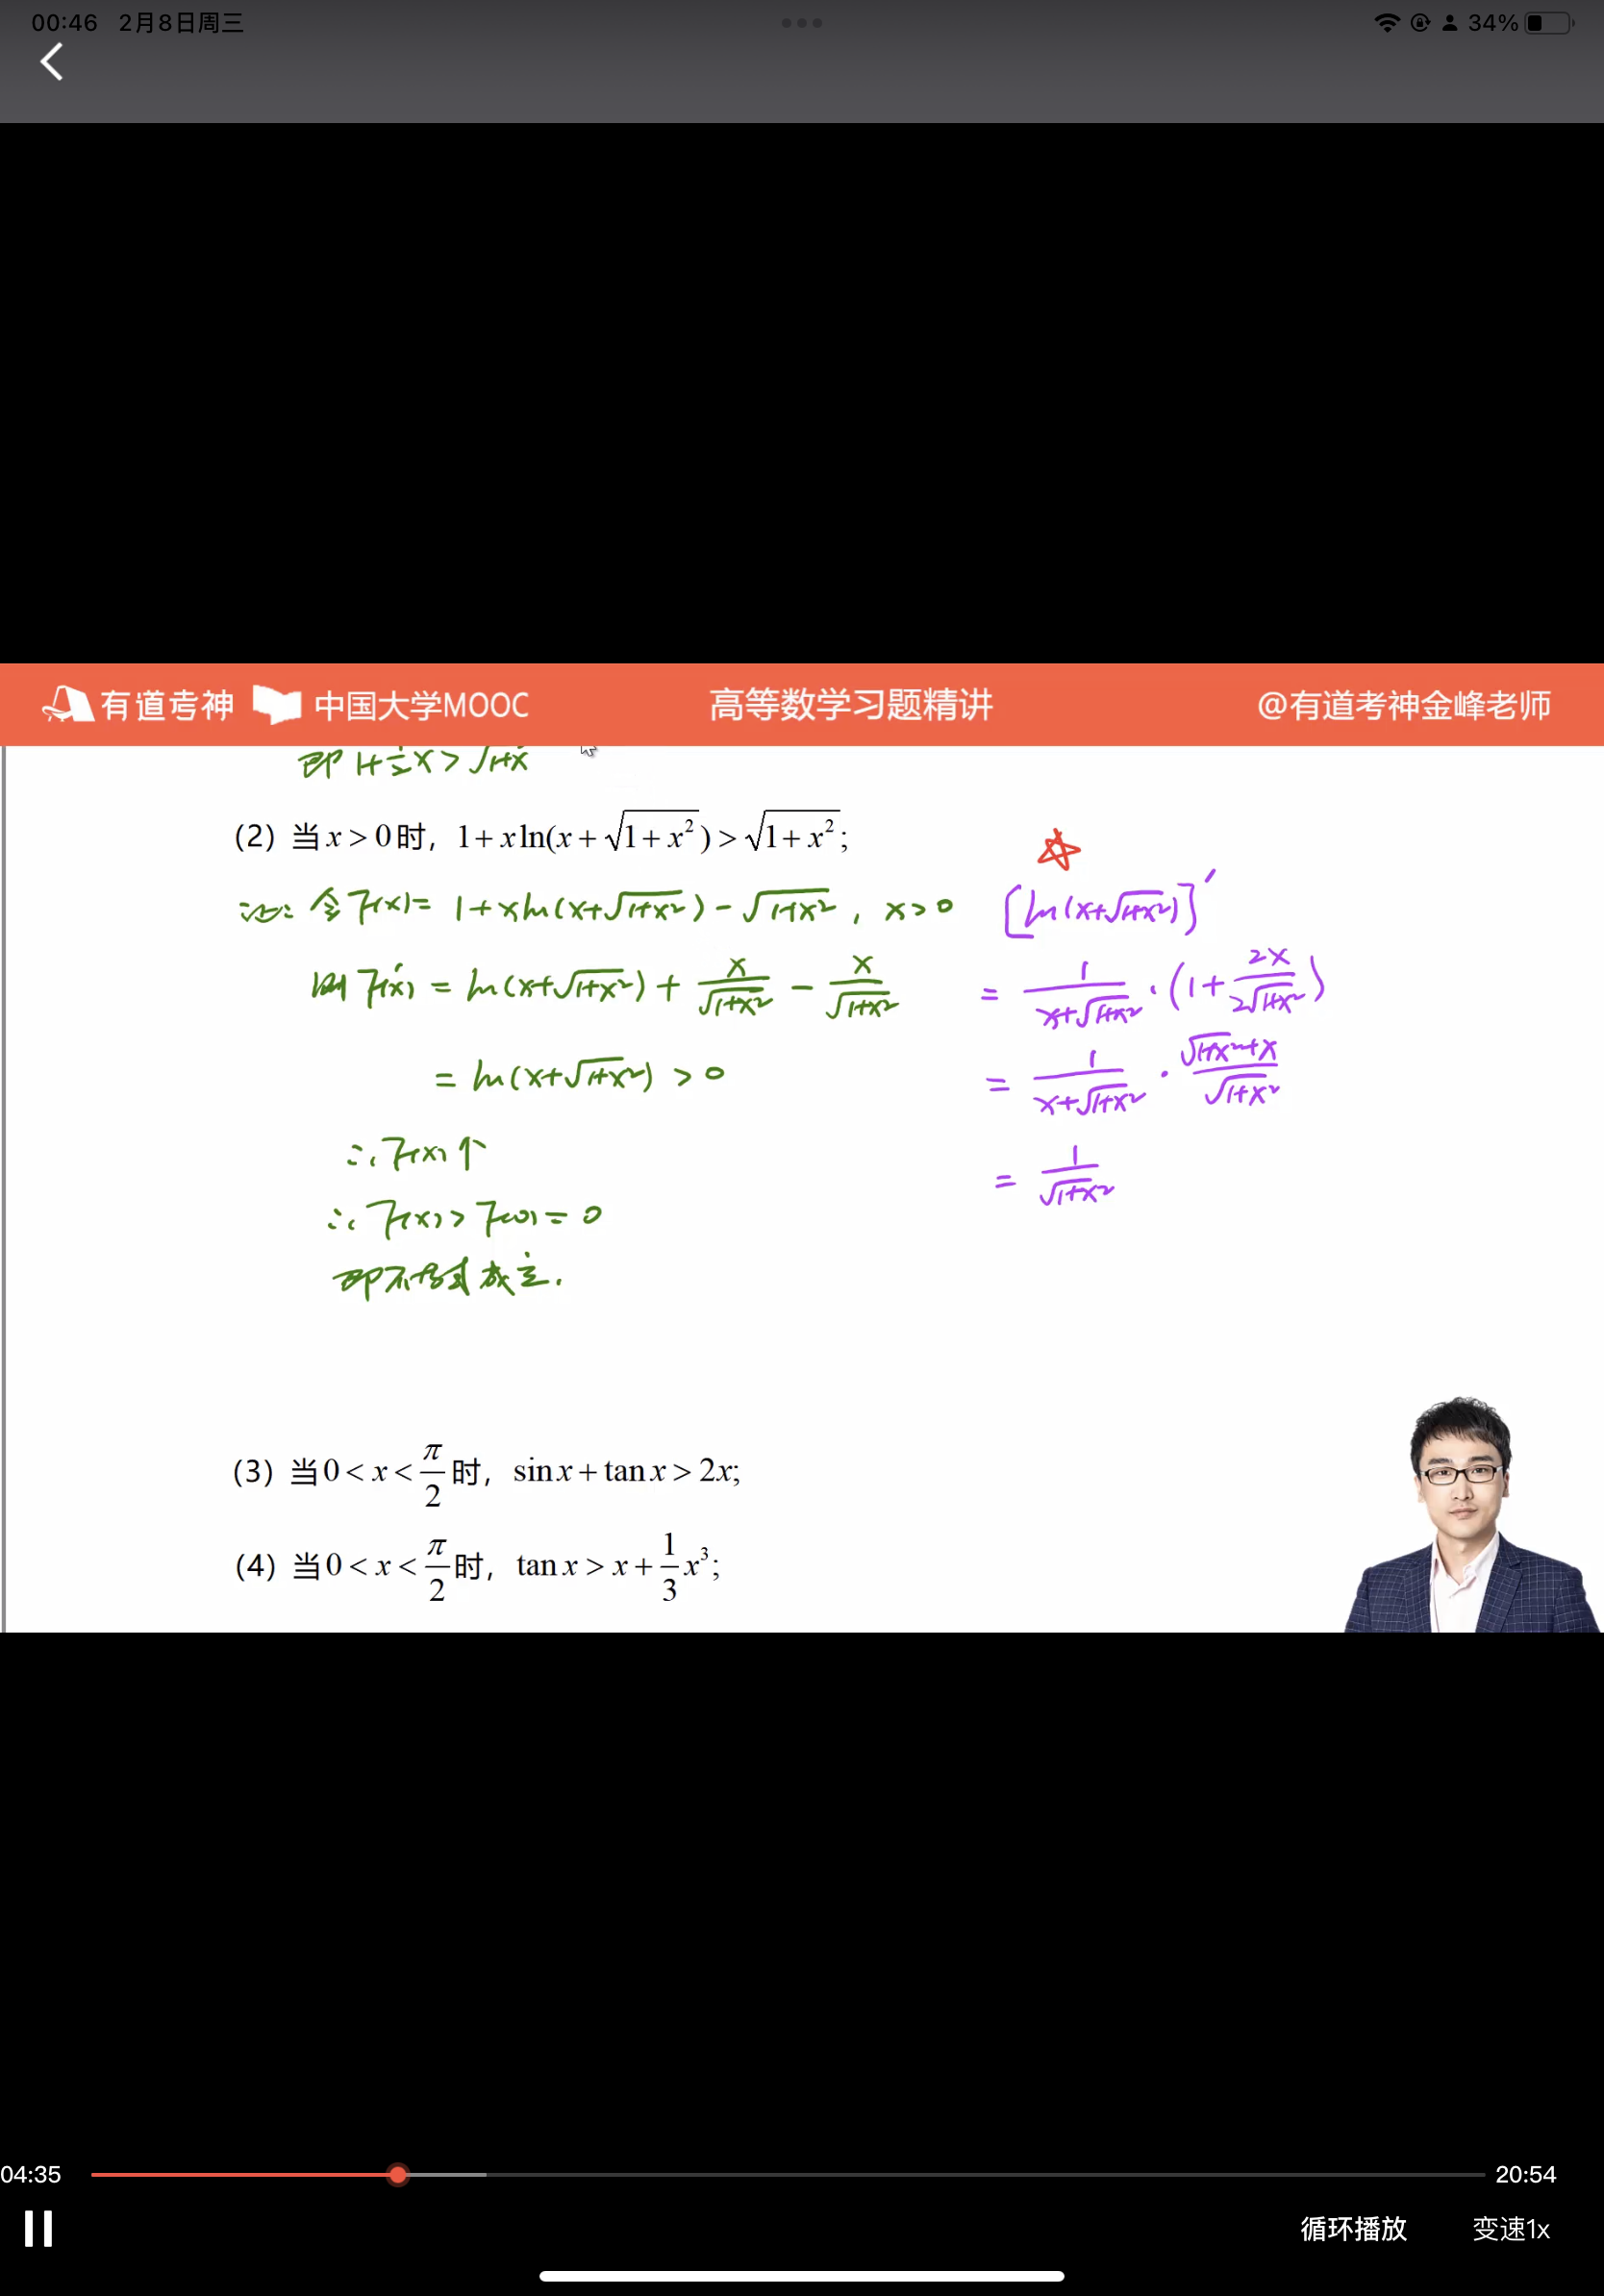 00:46 2月8日周三
34%
有道考神 中国大学MOOC 高等数学习题精讲 @有道考神金峰老师
即 1+½x > √1+x
(2) 当 x > 0 时, 1 + x ln(x + √1 + x²) > √1 + x²;
证: 令 F(x) = 1 + x ln(x+√1+x²) - √1+x² , x > 0
则 F'(x) = ln(x+√1+x²) + x/√1+x² - x/√1+x²
= ln(x+√1+x²) > 0
∴ F(x) ↑
∴ F(x) > F(0) = 0
即不等式成立.
[ln(x+√1+x²)]'
= 1/(x+√1+x²) · (1 + 2x/2√1+x²)
= 1/(x+√1+x²) · (√1+x² + x)/√1+x²
= 1/√1+x²
(3) 当 0 < x < π/2 时, sin x + tan x > 2x;
(4) 当 0 < x < π/2 时, tan x > x + 1/3 x³;
04:35 20:54
循环播放 变速1x